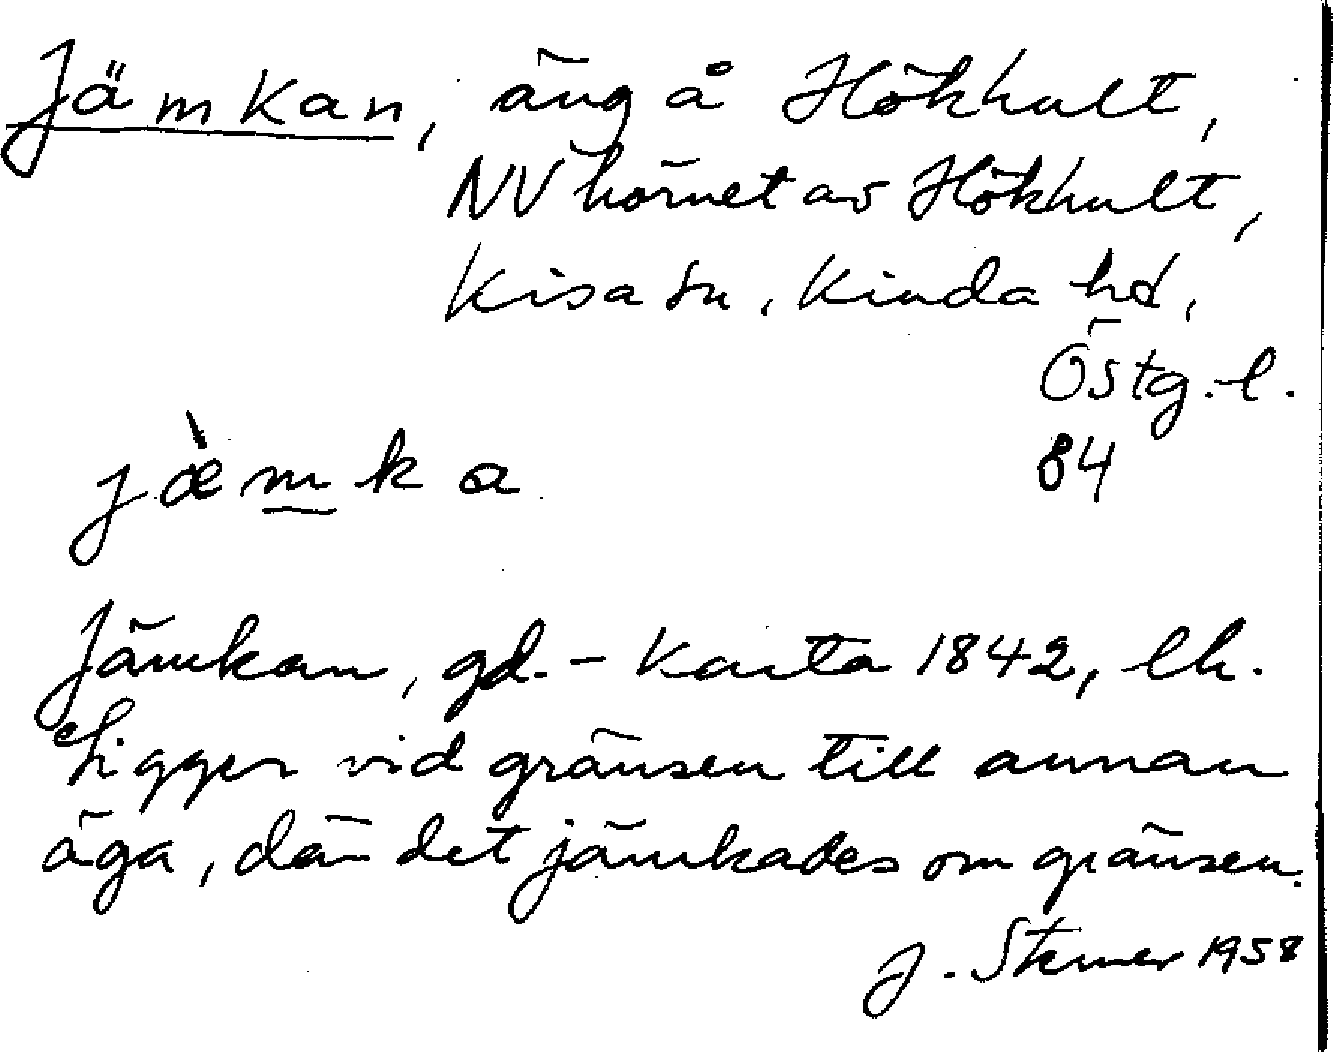 Jämkan, äng å Hökhult,
NV hörnet av Hökhult,
Kisa sn, Kinda hd,
Östg. l.
84
jæ̀mka
Jämkan, gd. - Karta 1842, lh.
Ligger vid gränsen till annan
äga, där det jämkades om gränsen.
J. Sterner 1958